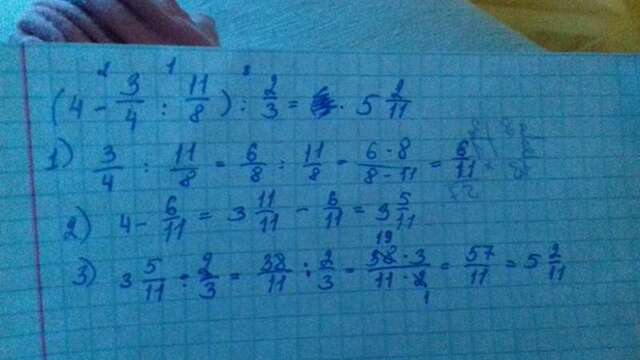 (4 - 3/4 : 11/8) : 2/3 = 5 2/11
1) 3/4 : 11/8 = 6/8 : 11/8 = 6·8/8·11 = 6/11
2) 4 - 6/11 = 3 11/11 - 6/11 = 3 5/11
3) 3 5/11 : 2/3 = 38/11 : 2/3 = 38·3/11·2 = 57/11 = 5 2/11